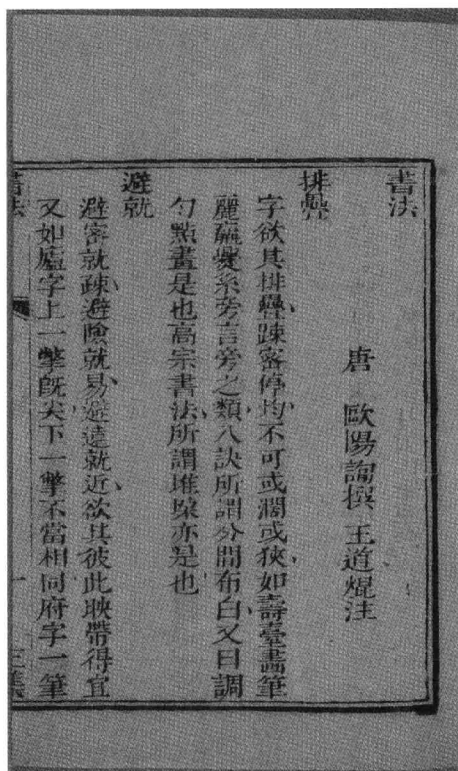 書法
唐 歐陽詢撰 王道焜注
排疊
字欲其排疊踈密停均不可或濶或狹如壽臺畵筆
麗羸爨糸旁言旁之類八訣所謂分間布白又曰調
勻點畫是也高宗書法所謂堆垜亦是也
避就
避密就踈避險就易避遠就近欲其彼此映帶得宜
又如廬字上一撆旣尖下一撆不當相同府字一筆
書法 一 三集